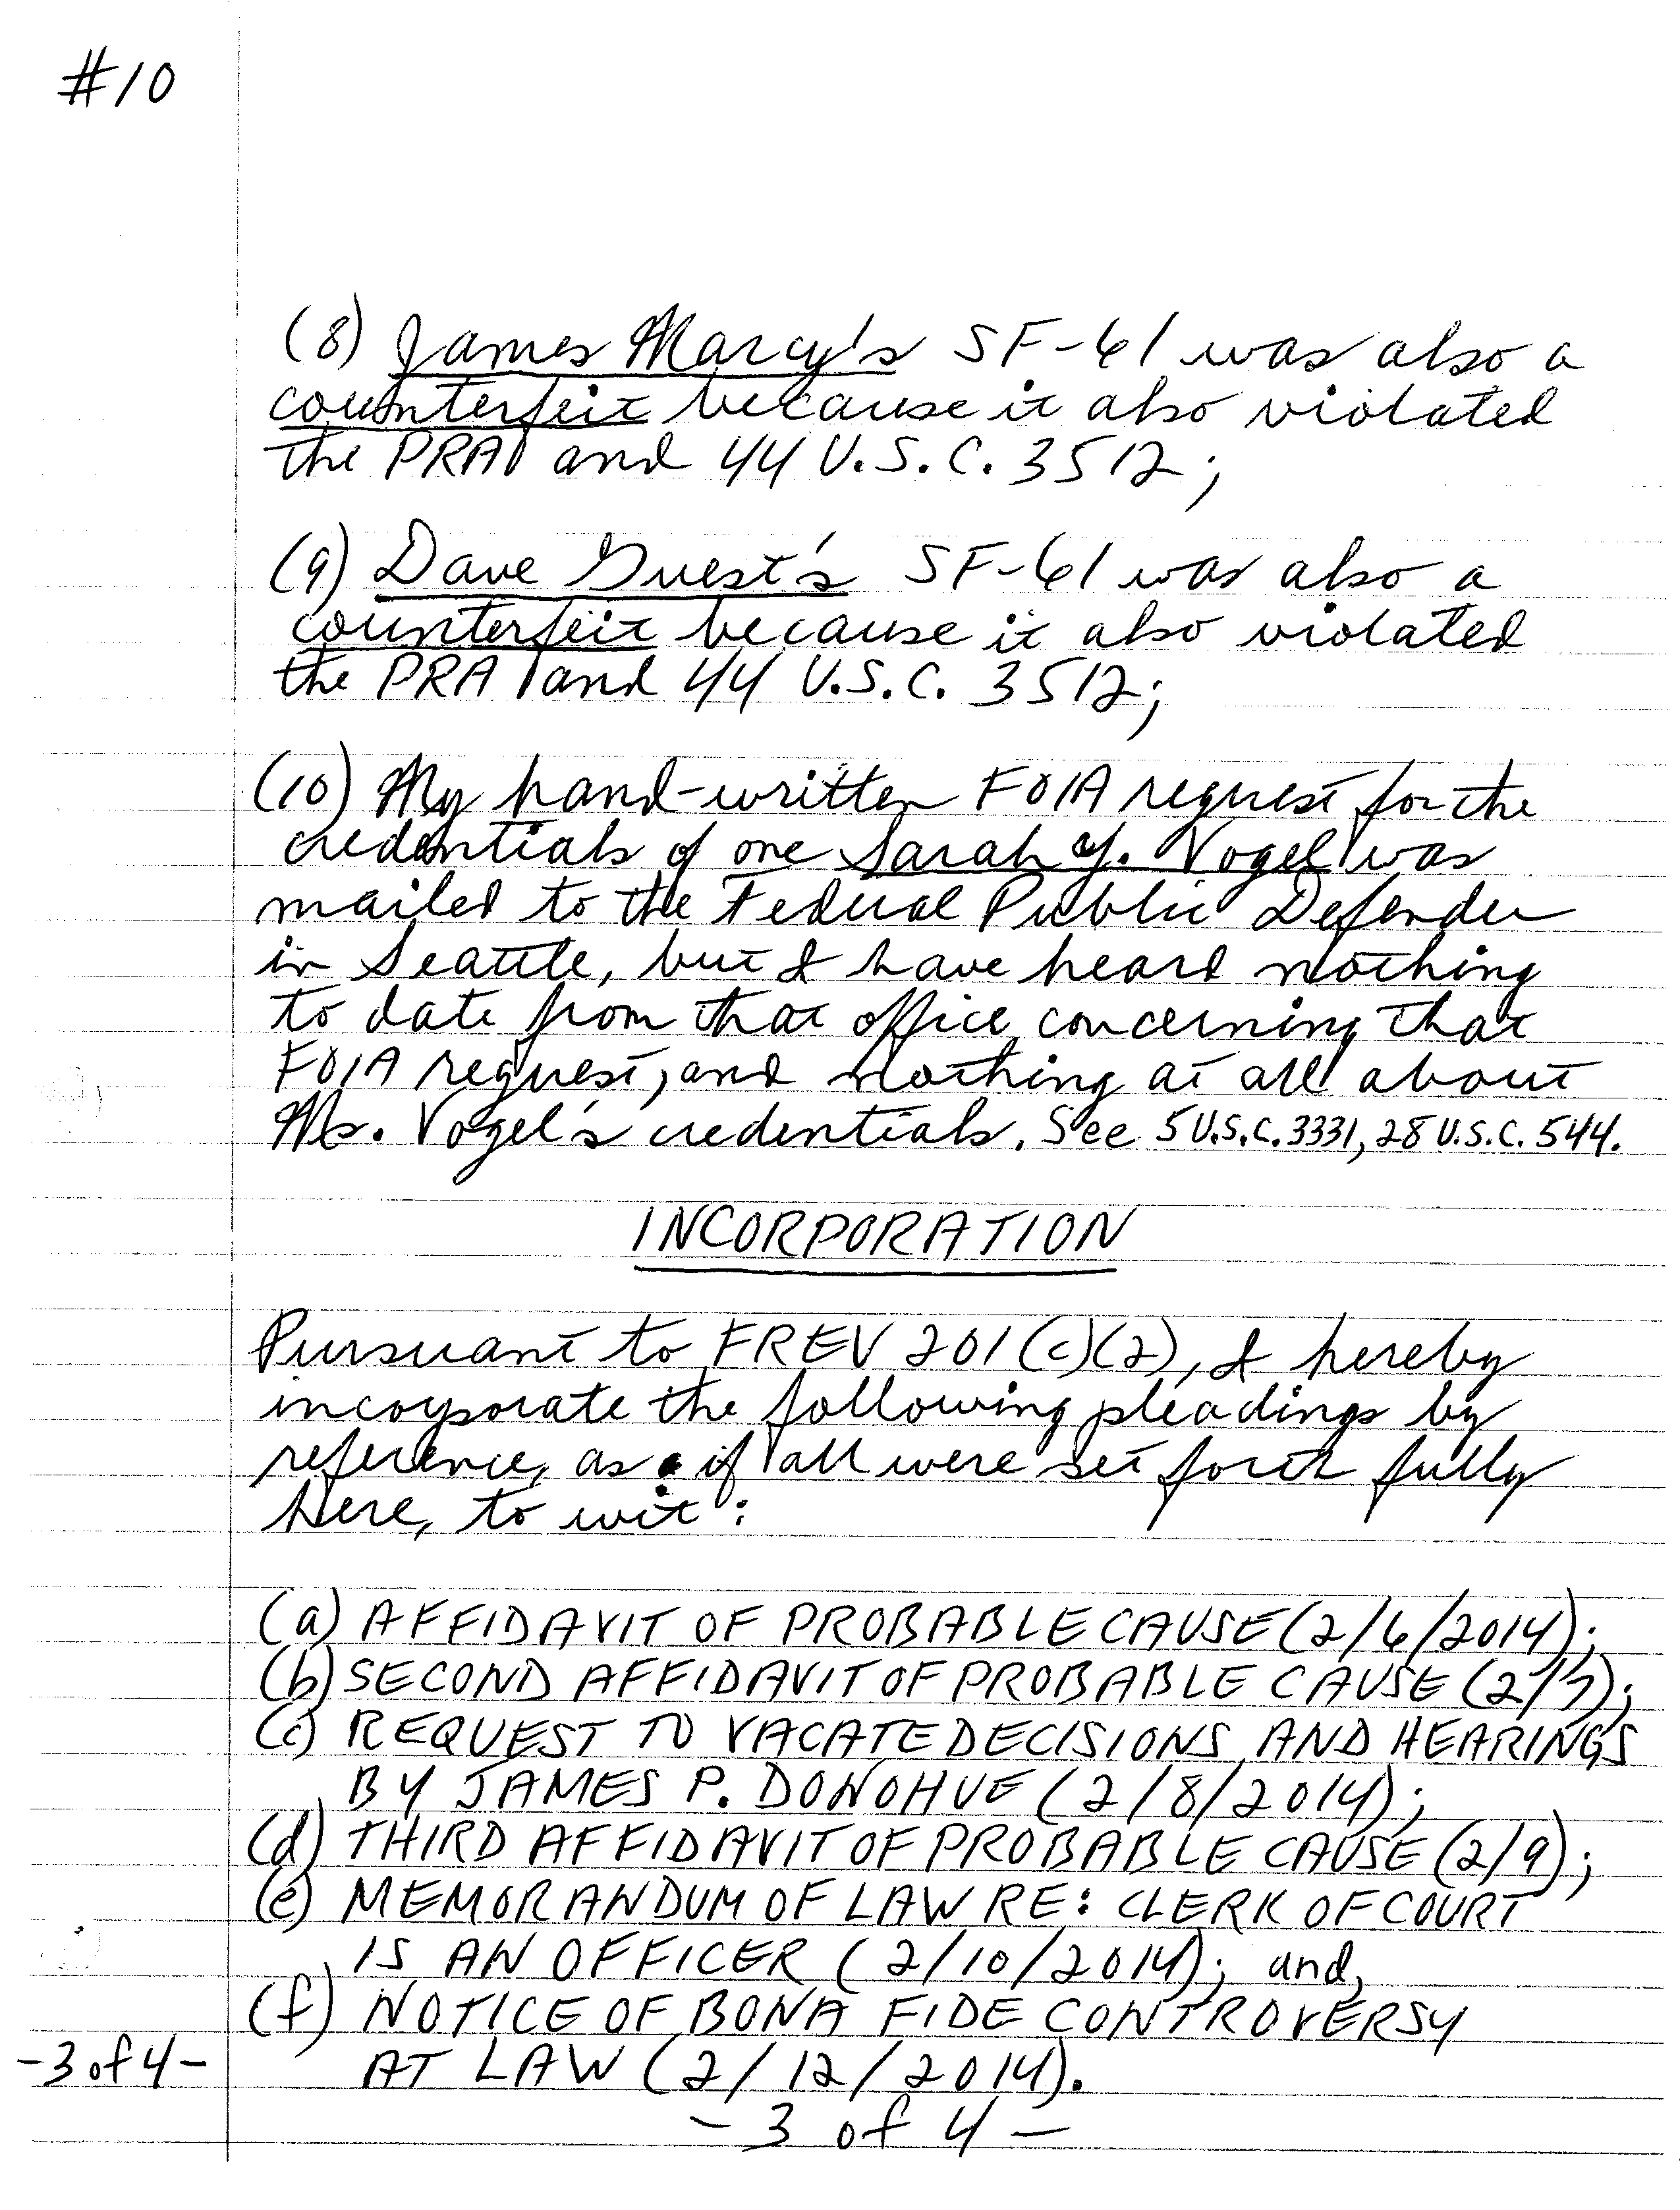 #10
(8) James Marcy's SF-61 was also a
counterfeit because it also violated
the PRA and 44 U.S.C. 3512;
(9) Dave Guest's SF-61 was also a
counterfeit because it also violated
the PRA and 44 U.S.C. 3512;
(10) My hand-written FOIA request for the
credentials of one Sarah Y. Vogel was
mailed to the Federal Public Defender
in Seattle, but I have heard nothing
to date from that office concerning that
FOIA request, and nothing at all about
Ms. Vogel's credentials. See 5 U.S.C. 3331, 28 U.S.C. 544.
INCORPORATION
Pursuant to FREV 201(c)(2), I hereby
incorporate the following pleadings by
reference, as if all were set forth fully
here, to wit:
(a) AFFIDAVIT OF PROBABLE CAUSE (2/6/2014);
(b) SECOND AFFIDAVIT OF PROBABLE CAUSE (2/7);
(c) REQUEST TO VACATE DECISIONS AND HEARINGS
BY JAMES P. DONOHUE (2/8/2014);
(d) THIRD AFFIDAVIT OF PROBABLE CAUSE (2/9);
(e) MEMORANDUM OF LAW RE: CLERK OF COURT
IS AN OFFICER (2/10/2014); and,
(f) NOTICE OF BONA FIDE CONTROVERSY
AT LAW (2/12/2014).
-3 of 4-
- 3 of 4 -